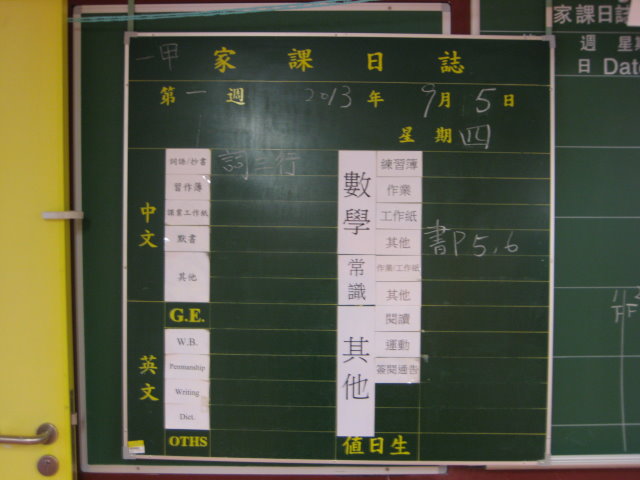 一甲 家課日誌
第一週 2013年 9月5日
星期四
中文
詞語/抄書 詞三行
習作簿
課業工作紙
默書
其他
英文
G.E.
W.B.
Penmanship
Writing
Dict.
OTHS
數學
練習簿
作業
工作紙
其他 書P5,6
常識
作業/工作紙
其他
其他
閱讀
運動
簽閱通告
值日生
家課日誌
週 星期
日 Date